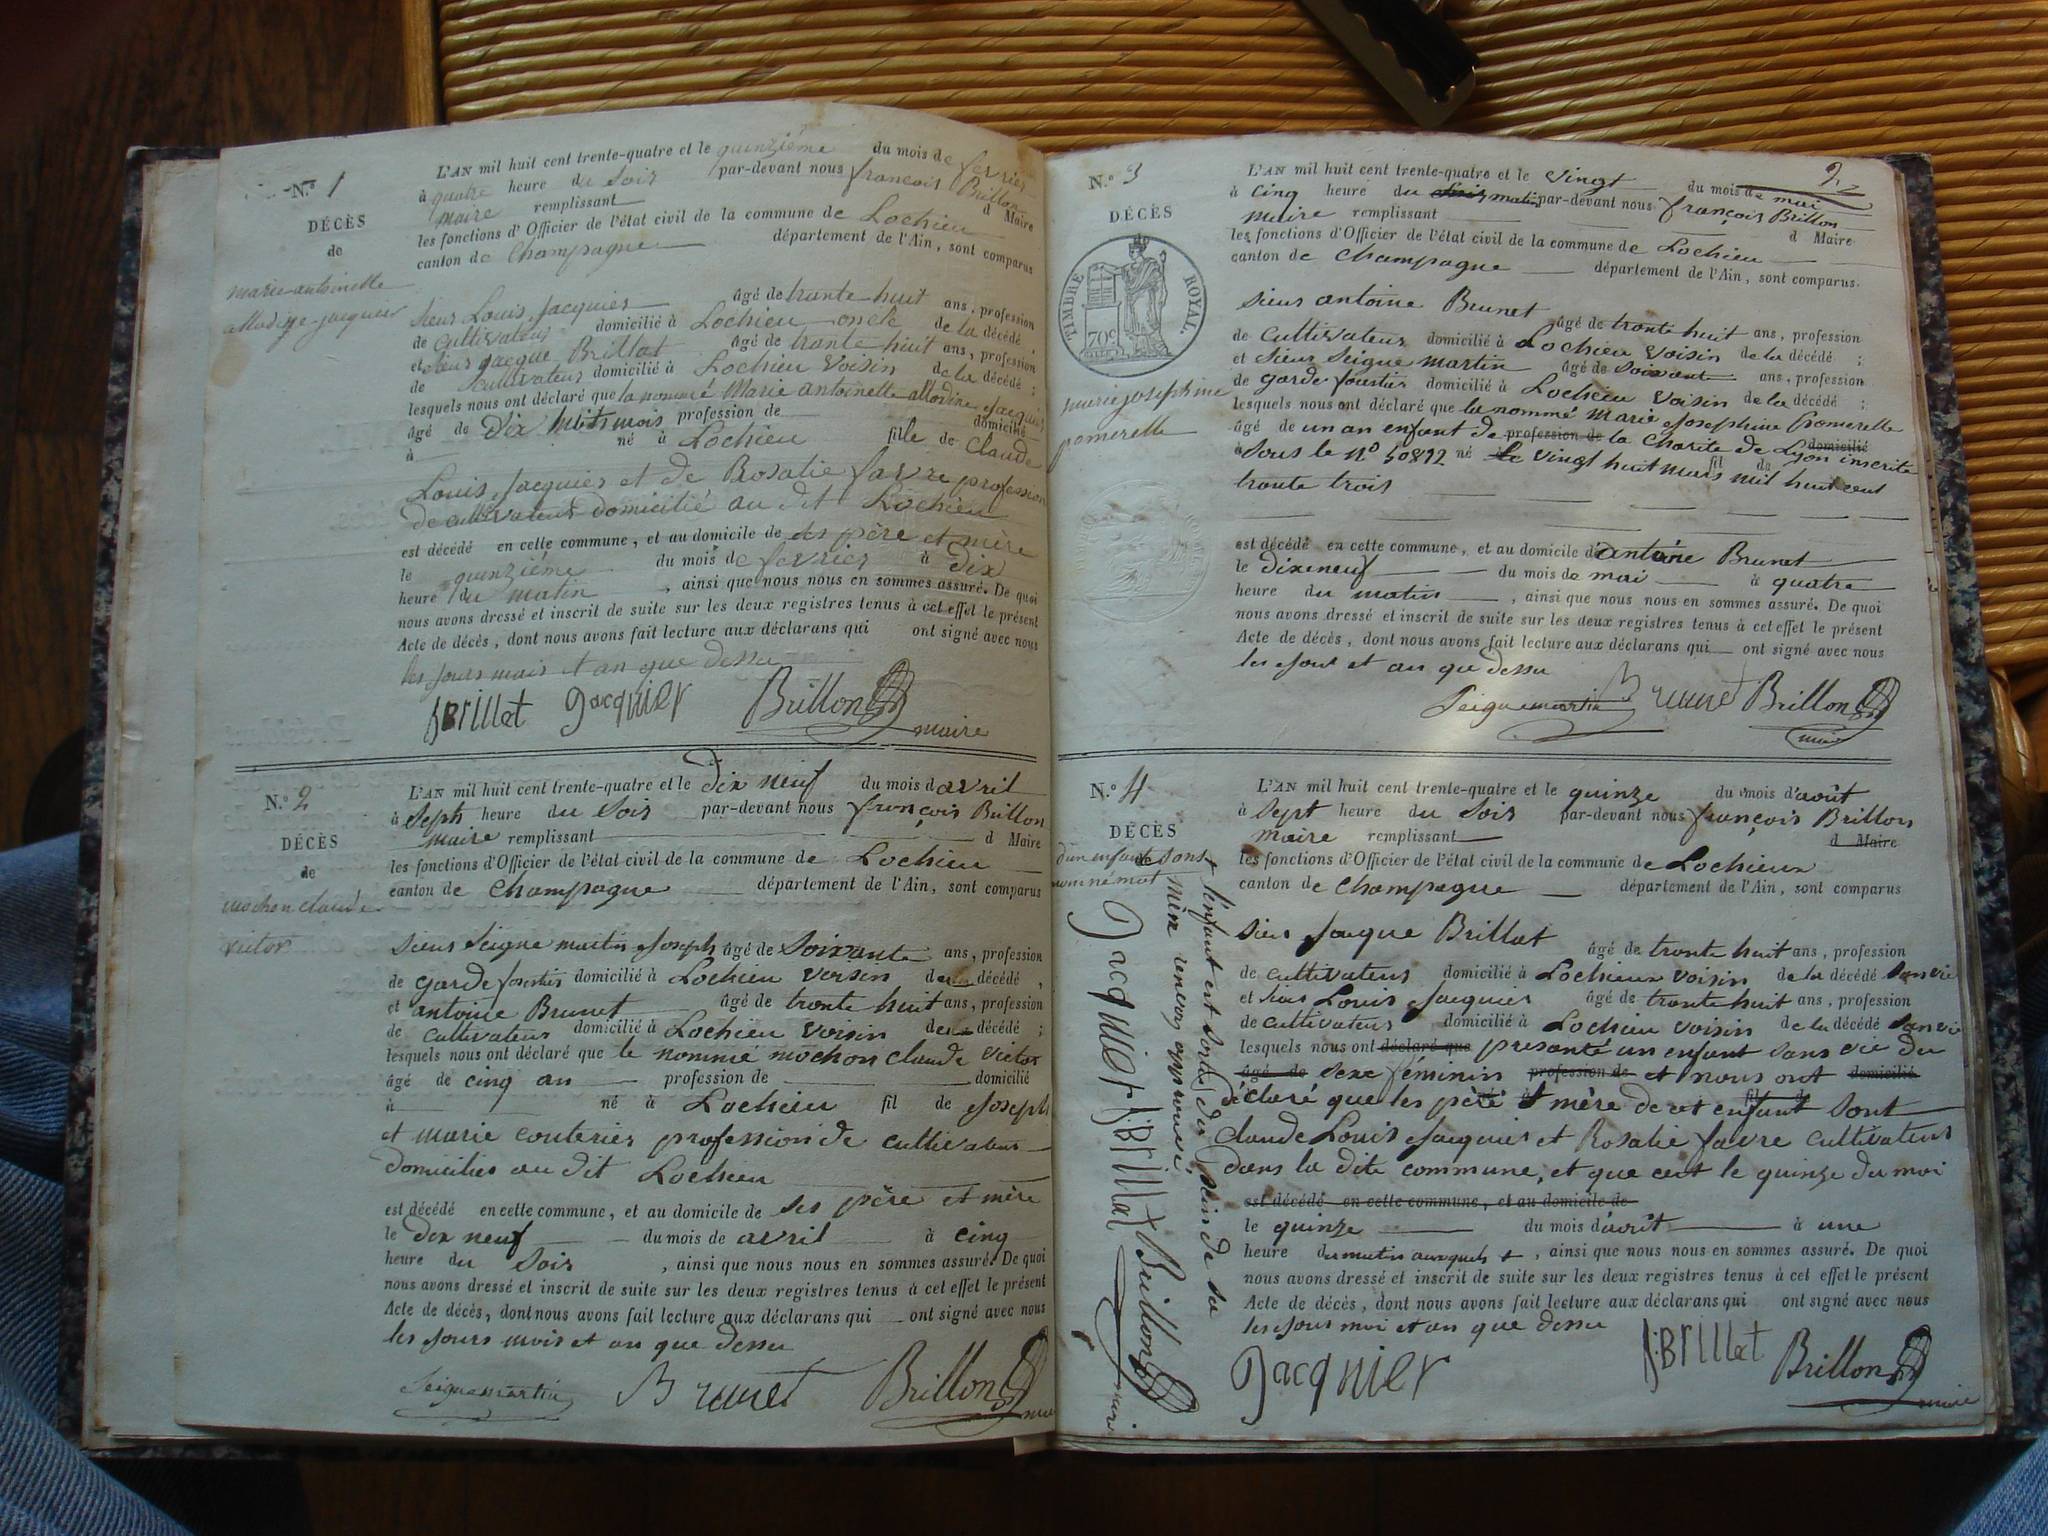 N.º 1
DÉCÈS
de
marie antoinette
allodie jacquier
L'AN mil huit cent trente-quatre et le quinzième du mois de fevrier
à quatre heure du soir par-devant nous françois Brillon
maire remplissant d Maire
les fonctions d'Officier de l'état civil de la commune de Lochieu
canton de Champagne département de l'Ain, sont comparus
sieur Louis Jacquier âgé de trante huit ans, profession
de cultivateur domicilié à Lochieu oncle de la décédé,
et sieur jacque Brillat âgé de trante huit ans, profession
de cultivateur domicilié à Lochieu voisin de la décédé ;
lesquels nous ont déclaré que la nommé Marie antoinette Jacquier
âgé de Dix huit mois profession de domicilié
à né à Lochieu fille de Claude
Louis Jacquier et de Rosalie favre profession
de cultivateur domicilié au dit Lochieu
est décédé en cette commune, et au domicile de ses père et mère
le quinzième du mois de fevrier à dix
heure du matin, ainsi que nous nous en sommes assuré. De quoi
nous avons dressé et inscrit de suite sur les deux registres tenus à cet effet le présent
Acte de décès, dont nous avons fait lecture aux déclarans qui ont signé avec nous
les jours mais et an que dessu
J.Brillat Jacquier Brillon
maire
N.º 2
DÉCÈS
de
mochon claude
victor
L'AN mil huit cent trente-quatre et le dix neuf du mois d avril
à Septs heure du Soir par-devant nous françois Brillon
maire remplissant d Maire
les fonctions d'Officier de l'état civil de la commune de Lochieu
canton de Champagne département de l'Ain, sont comparus
sieur Seigne martin Joseph âgé de Soixante ans, profession
de garde forestier domicilié à Lochieu voisin de la décédé,
et antoine Brunet âgé de trante huit ans, profession
de cultivateur domicilié à Lochieu voisin de décédé ;
lesquels nous ont déclaré que le nommé mochon claude victor
âgé de cinq an profession de domicilié
à né à Lochieu fil de Joseph
et marie couterier profession de cultivateur
domicilies au dit Lochieu
est décédé en cette commune, et au domicile de ses père et mère
le dix neuf du mois de avril à cinq
heure du soir, ainsi que nous nous en sommes assuré. De quoi
nous avons dressé et inscrit de suite sur les deux registres tenus à cet effet le présent
Acte de décès, dont nous avons fait lecture aux déclarans qui ont signé avec nous
les jours mois et an que dessu
Seignemartin Brunet Brillon
maire
2
N.º 3
DÉCÈS
TIMBRE ROYAL.
70c
marie josephine
pomerelle
L'AN mil huit cent trente-quatre et le vingt du mois de mai
à cinq heure du matin par-devant nous françois Brillon
maire remplissant d Maire
les fonctions d'Officier de l'état civil de la commune de Lochieu
canton de Champagne département de l'Ain, sont comparus.
sieur antoine Brunet âgé de trante huit ans, profession
de cultivateur domicilié à Lochieu voisin de la décédé ;
et sieur Seigne martin âgé de soixante ans, profession
de garde forestier domicilié à Lochieu voisin de la décédé ;
lesquels nous ont déclaré que la nommé marie Josephine Pomerelle
âgé de un an enfant de profession de la Charité de Lyon domicilié inscrite
à sous le nº 50812 né le vingt huit mars mil huit cent fil de
trante trois
est décédé en cette commune, et au domicile de antoine Brunet
le dixeneuf du mois de mai à quatre
heure du matin, ainsi que nous nous en sommes assuré. De quoi
nous avons dressé et inscrit de suite sur les deux registres tenus à cet effet le présent
Acte de décès, dont nous avons fait lecture aux déclarans qui ont signé avec nous
les jour et an que dessu
Seignemartin Brunet Brillon
maire
N.º 4
DÉCÈS
d'un enfant de sont
nom né mort
L'AN mil huit cent trente-quatre et le quinze du mois d'août
à sept heure du soir par-devant nous françois Brillon
maire remplissant d Maire
les fonctions d'Officier de l'état civil de la commune de Lochieux
canton de Champagne département de l'Ain, sont comparus
sieur Jacque Brillat âgé de trante huit ans, profession
de cultivateur domicilié à Lochieux voisin de la décédé san vie
et sieur Louis Jacquier âgé de trante huit ans, profession
de cultivateur domicilié à Lochieu voisin de la décédé san vie
lesquels nous ont déclaré que presanté un enfant sans vie du
âgé de sexe féminin profession de et nous ont domicilié
déclaré que les père et mère de cet enfant sont
claude Louis Jacquier et Rosalie favre cultivateur
dans la dite commune, et que cest le quinze du moi
est décédé en cette commune, et au domicile de
le quinze du mois d'août à une
heure du matin auxquels +, ainsi que nous nous en sommes assuré. De quoi
nous avons dressé et inscrit de suite sur les deux registres tenus à cet effet le présent
Acte de décès, dont nous avons fait lecture aux déclarans qui ont signé avec nous
les jour moi et an que dessu
Jacquier J.Brillat Brillon
maire
+ l'enfant est sorti du sein de sa
mère renvoy approuvé,
Jacquier J.Brillat Brillon
maire